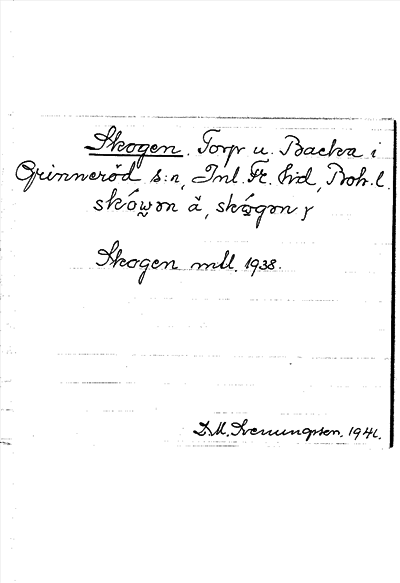 Skogen. Torp u. Backa i
Grinneröd s:n, Inl. Fr. hd, Boh. l.
skówon ä, skógon y
Skogen mtl. 1938.
D.M. Svenungsson. 1941.